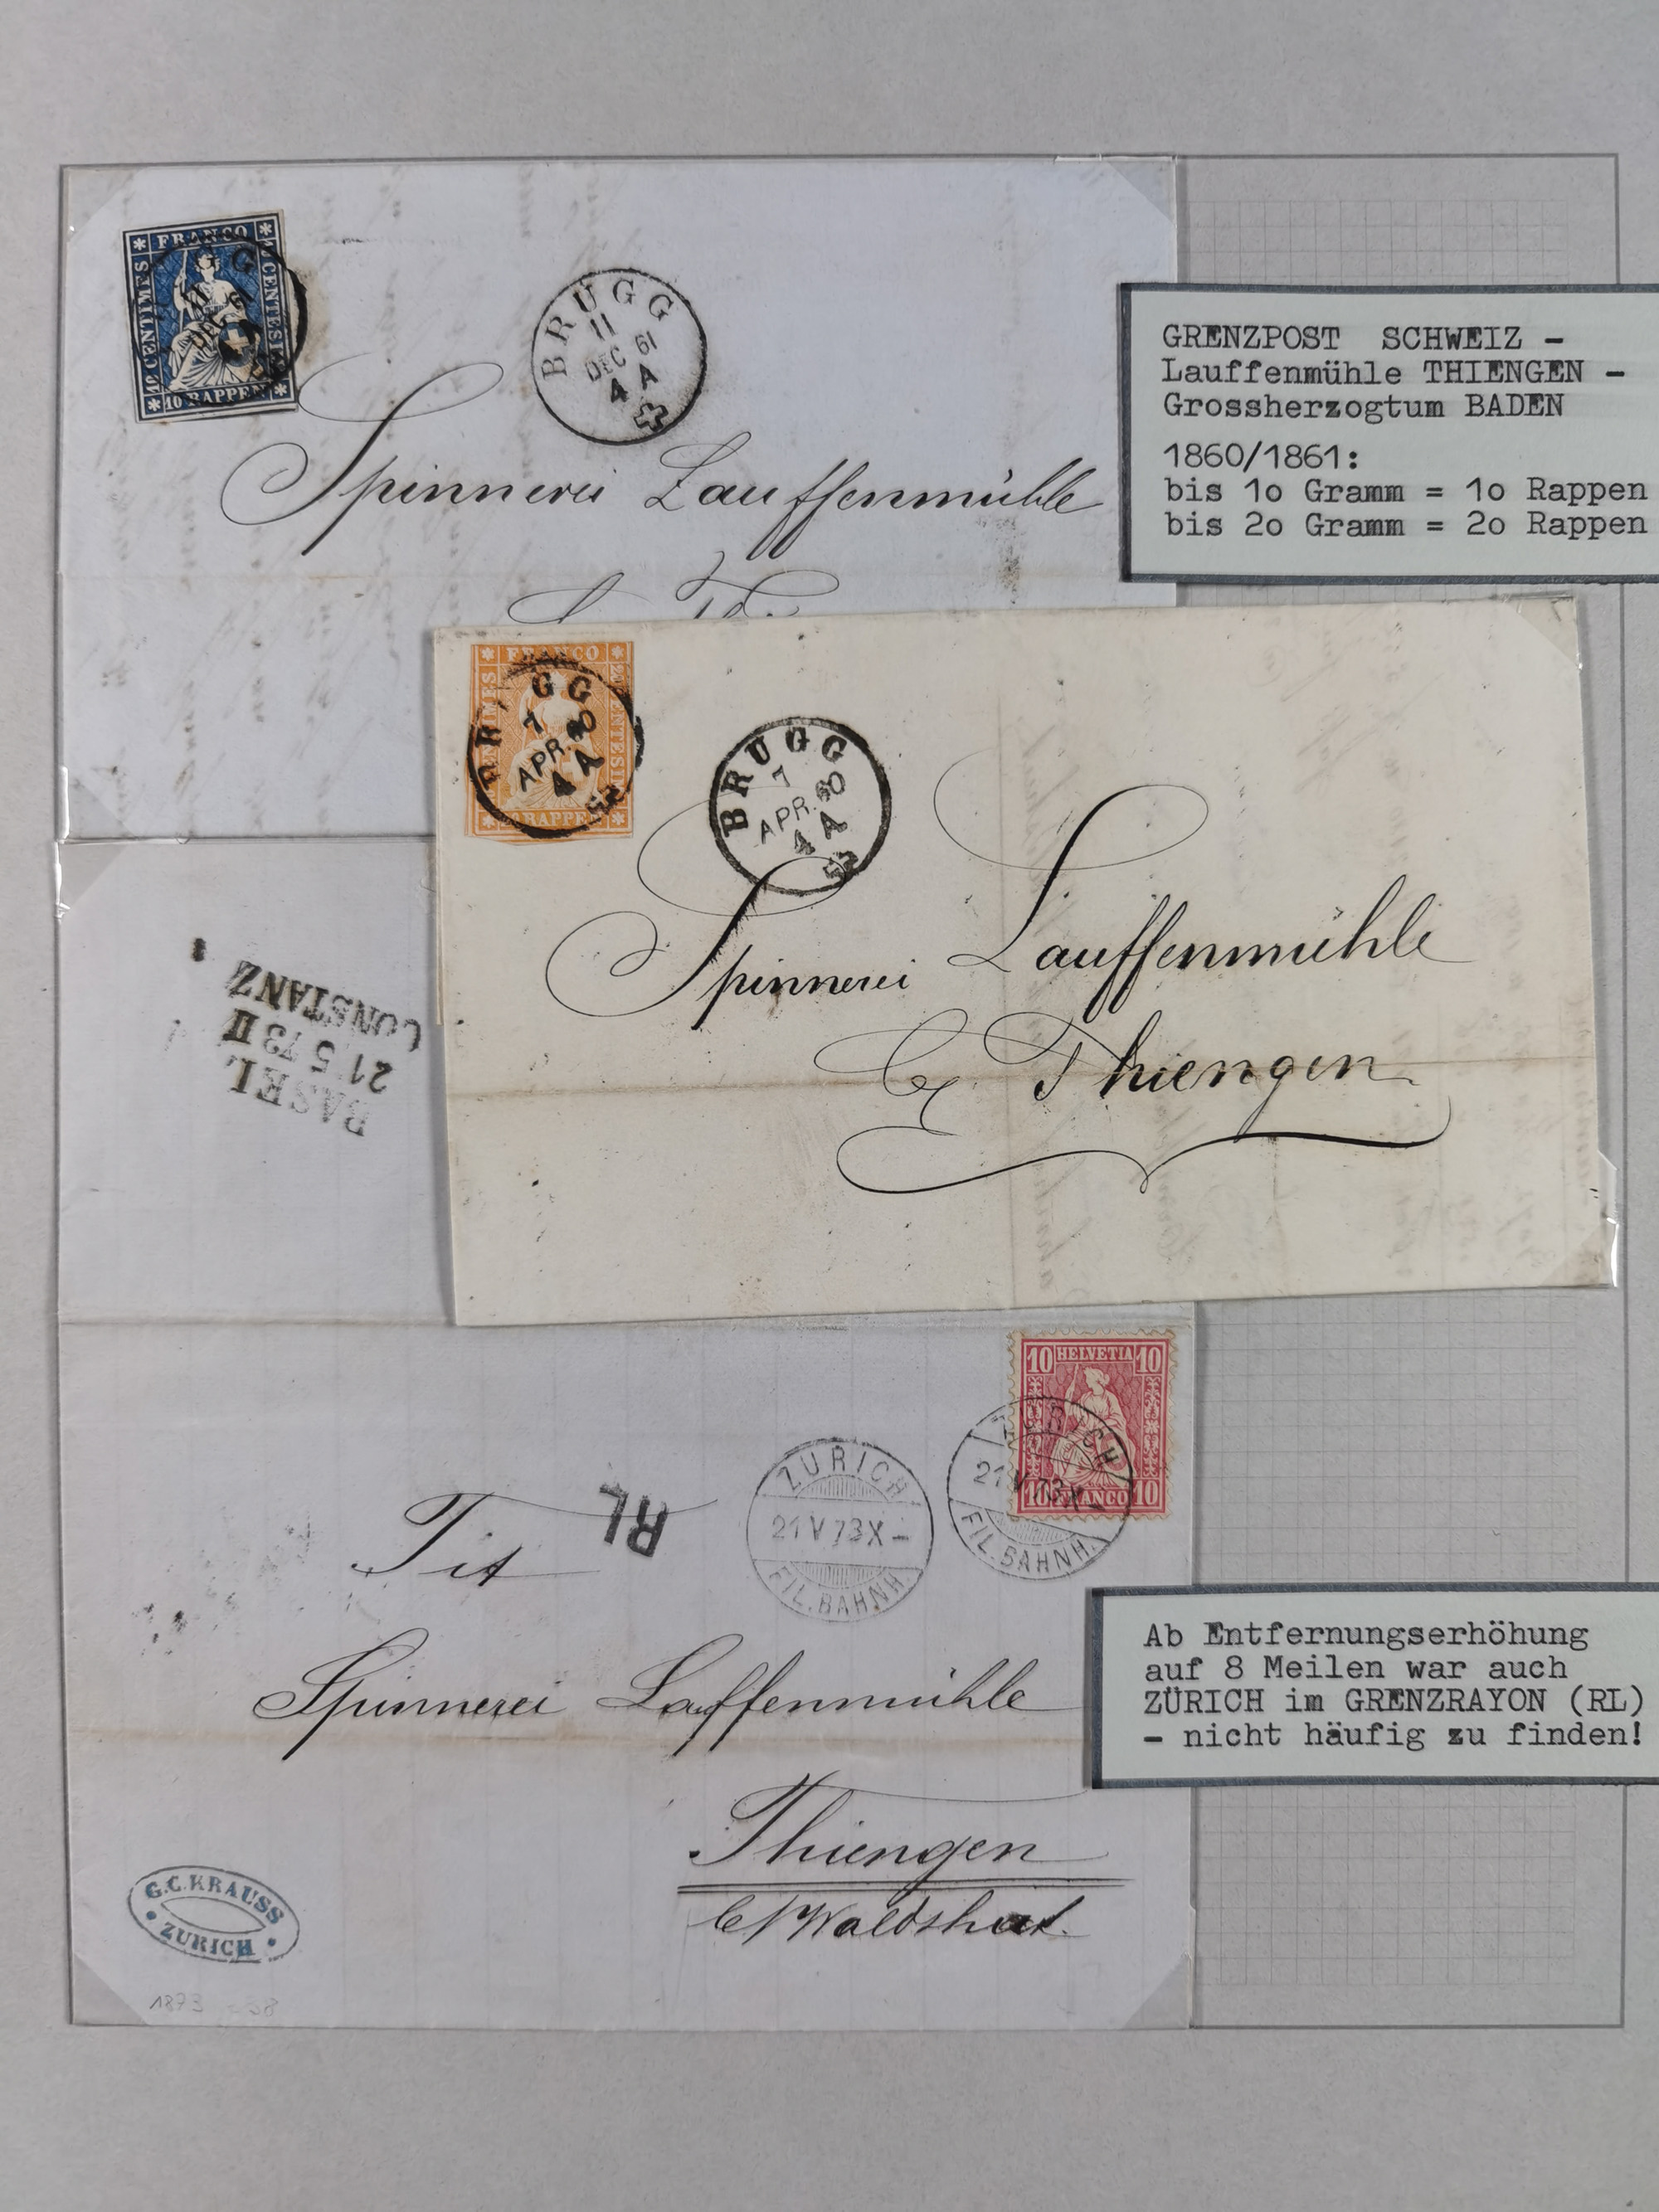 FRANCO
10 CENTIMES
CENTESIMI
10 RAPPEN
BRUGG
11
DEC 61
4 A
BRUGG
11
DEC 61
4 A
Spinnerei Lauffenmühle
GRENZPOST SCHWEIZ –
Lauffenmühle THIENGEN –
Grossherzogtum BADEN
1860/1861:
bis 1o Gramm = 1o Rappen
bis 2o Gramm = 2o Rappen
FRANCO
RAPPEN
BRUGG
7
APR. 60
4 A
BRUGG
7
APR. 60
4 A
Spinnerei Lauffenmühle
Thiengen
BASEL
21 5 73 II
CONSTANZ
10 HELVETIA 10
10 FRANCO 10
ZÜRICH
21 V 73 X –
FIL. BAHNH.
ZÜRICH
21 V 73 X –
FIL. BAHNH.
RL
Tit
Spinnerei Lauffenmühle
Thiengen
b/Waldshut.
G.C. KRAUSS
ZURICH
1873
Ab Entfernungserhöhung
auf 8 Meilen war auch
ZÜRICH im GRENZRAYON (RL)
– nicht häufig zu finden!